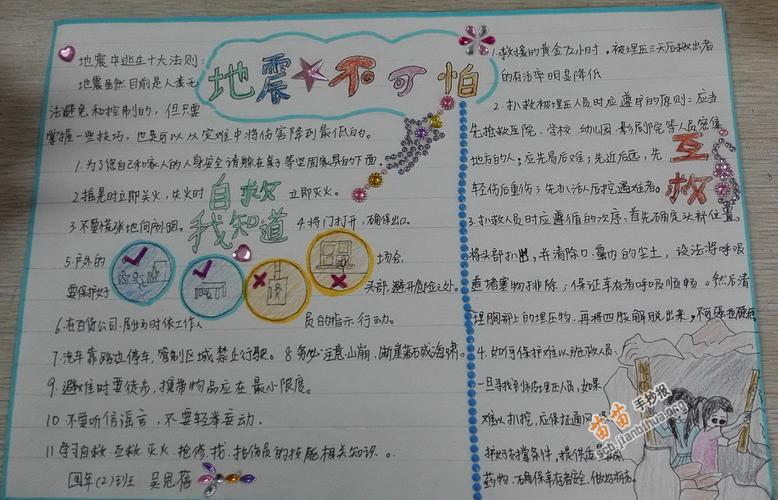 地震★不可怕
地震中逃生十大法则:
地震虽然目前是人类无
法避免和控制的，但只要
掌握一些技巧，也是可以从灾难中将伤害降到最低的。
1.为了您自己和家人的人身安全请躲在桌子等坚固家具的下面
2.摇晃时立即关火，失火时
立即灭火。
自救
我知道
3.不要慌张地向外跑。
4.将门打开，确保出口。
5.户外的
场合，
要保护好
头部，避开危险之处。
6.在百货公司、剧场时依工作人
员的指示行动。
7.汽车靠路边停车，管制区域禁止行驶。
8.务必注意山崩，断崖落石或海啸。
9.避难时要徒步，携带物品应在最小限度。
10不要听信谣言，不要轻举妄动。
11学习自救、互救、灭火、抢修、
伤员的技能相关知识。
四年(2)班
1.救援的黄金72小时，被埋压三天后救出者
的存活率明显降低
2.扒救被埋压人员时应遵守的原则:应当
先抢救医院、学校、幼儿园、影剧院等人员密集
地方的人；应先易后难；先近后远；先
轻伤后重伤；先扒活人后挖遇难者。
互救
3.扒救人员时应遵循的次序:首先确定头部位置，
将头部扒出，并清除口鼻内的尘土，设法将呼吸
道堵塞物排除；保证幸存者呼吸顺畅。然后清
理胸部上的埋压物，再将四肢解脱出来，不可强拉硬拽
4.如何保护难以施救人员，
一旦寻找到被埋压人员，如果
难以扒挖，应保持通风
护好支撑条件，提供
药物
苗苗手抄报
scb.jianbihua.org